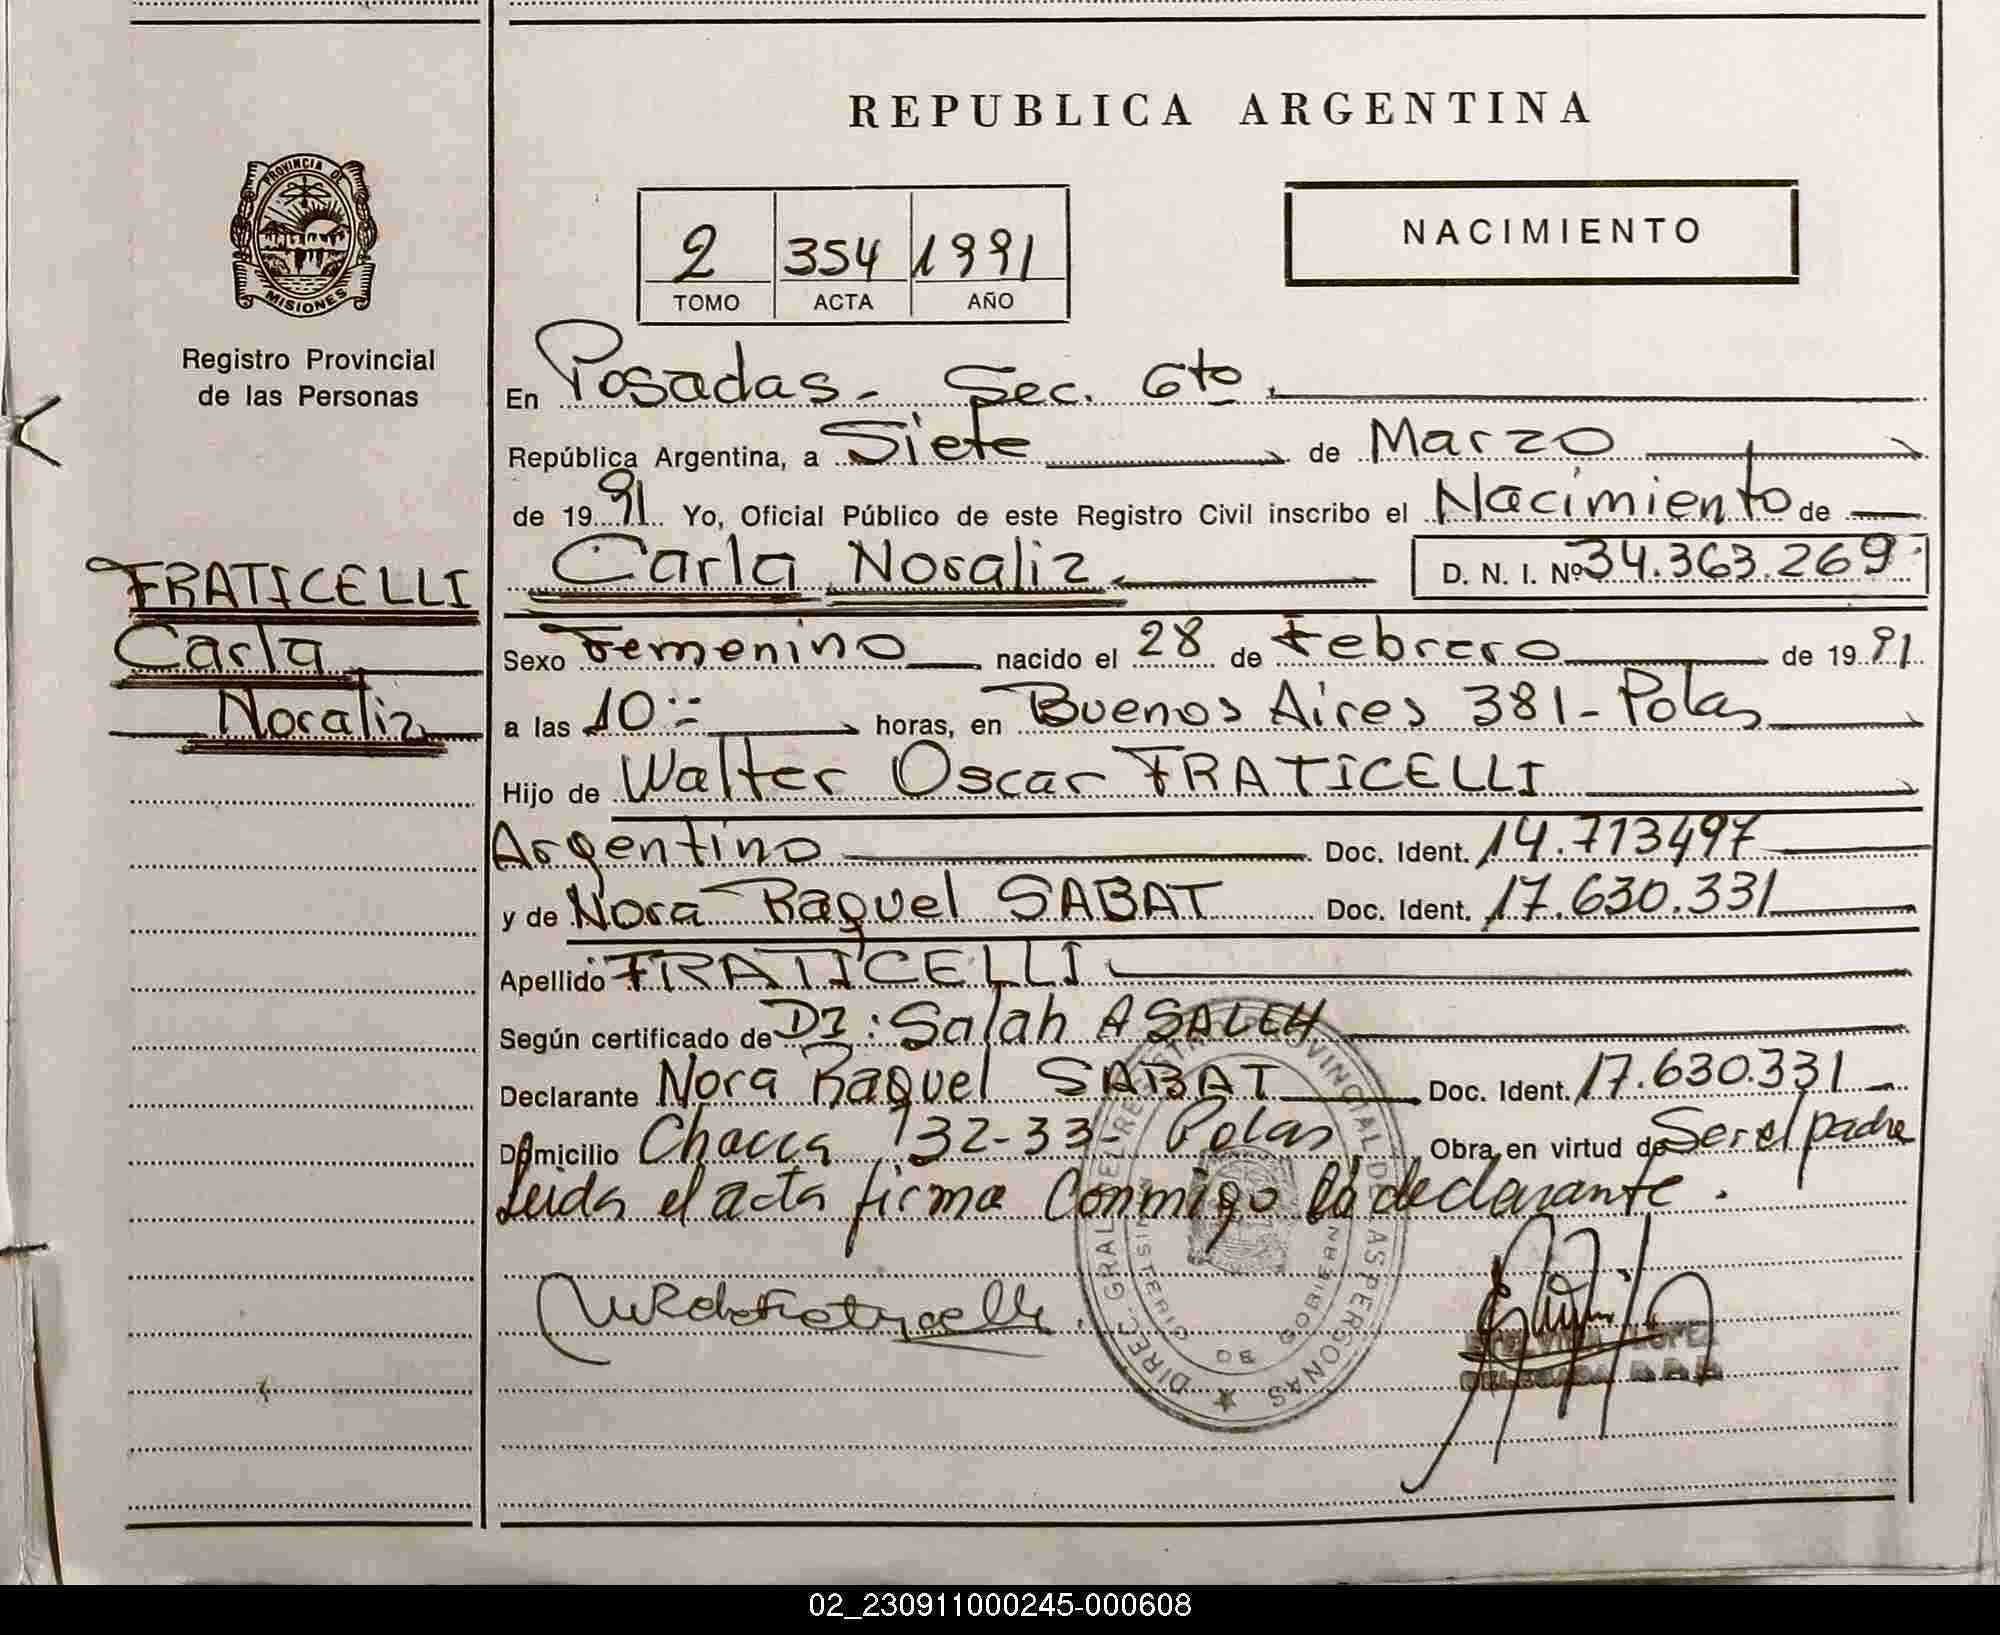 REPUBLICA ARGENTINA
PROVINCIA DE
MISIONES
Registro Provincial
de las Personas
2 354 1991
TOMO ACTA AÑO
NACIMIENTO
En Posadas - Sec. 6to.
República Argentina, a Siete de Marzo
de 1991 Yo, Oficial Público de este Registro Civil inscribo el Nacimiento de
FRATICELLI
Carla
Noraliz
Carla Noraliz D. N. I. Nº 34.363.269
Sexo Femenino nacido el 28 de Febrero de 1991
a las 10:- horas, en Buenos Aires 381 - Pdas
Hijo de Walter Oscar FRATICELLI
Argentino Doc. Ident. 14.713497
y de Nora Raquel SABAT Doc. Ident. 17.630.331
Apellido FRATICELLI
Según certificado de Dr: Salah A SALEH
Declarante Nora Raquel SABAT Doc. Ident. 17.630.331
Domicilio Chacra 32-33- Pdas Obra en virtud de Ser el padre
Leida el acta firma Conmigo la declarante.
DIREC. GRAL. DEL REGISTRO PROVINCIAL DE LAS PERSONAS
LOPEZ
DELEGADA
02_230911000245-000608